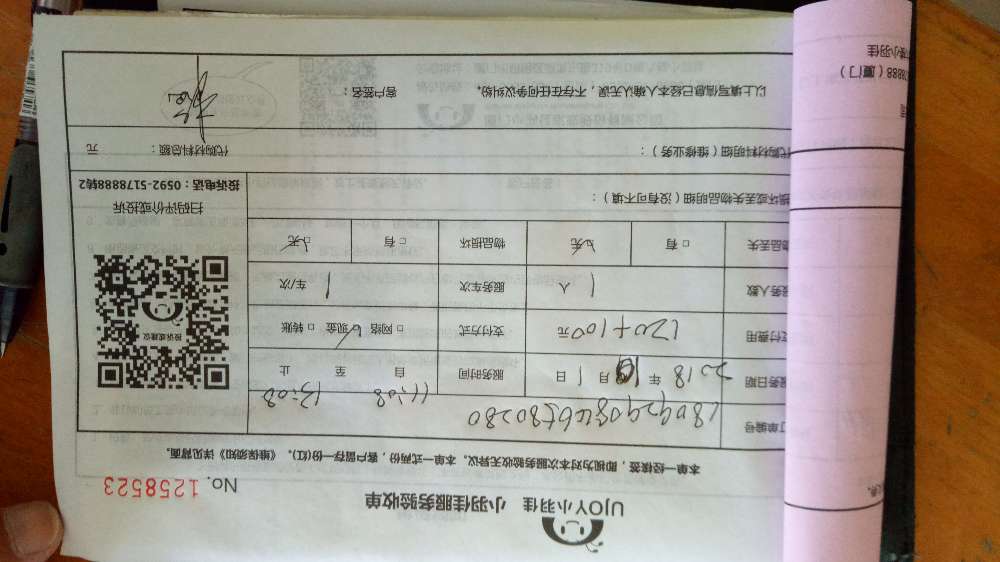 UJOY小羽佳 小羽佳服务验收单
No. 1258523
本单一经核签，即视为对本次服务验收无异议。本单一式两份，客户留存一份(红)。《维保须知》详见背面。
订单编号
服务日期 2018年10月1日 服务时间 自11:08至13:08止
支付费用 120+100元 支付方式 □网络 □现金 □转账
服务人数 1人 服务车次 1车/次
物品丢失 □有 □无 物品损坏 □有 □无
损坏或丢失物品明细（没有可不填）：
代购材料明细（维修业务）： 代购材料总额： 元
以上填写信息已经本人确认无误，不存在任何争议纠纷。 客户签名：
投诉或建议
扫码评价或投诉
投诉电话：0592-5178888转2
小羽佳
8888（厦门）